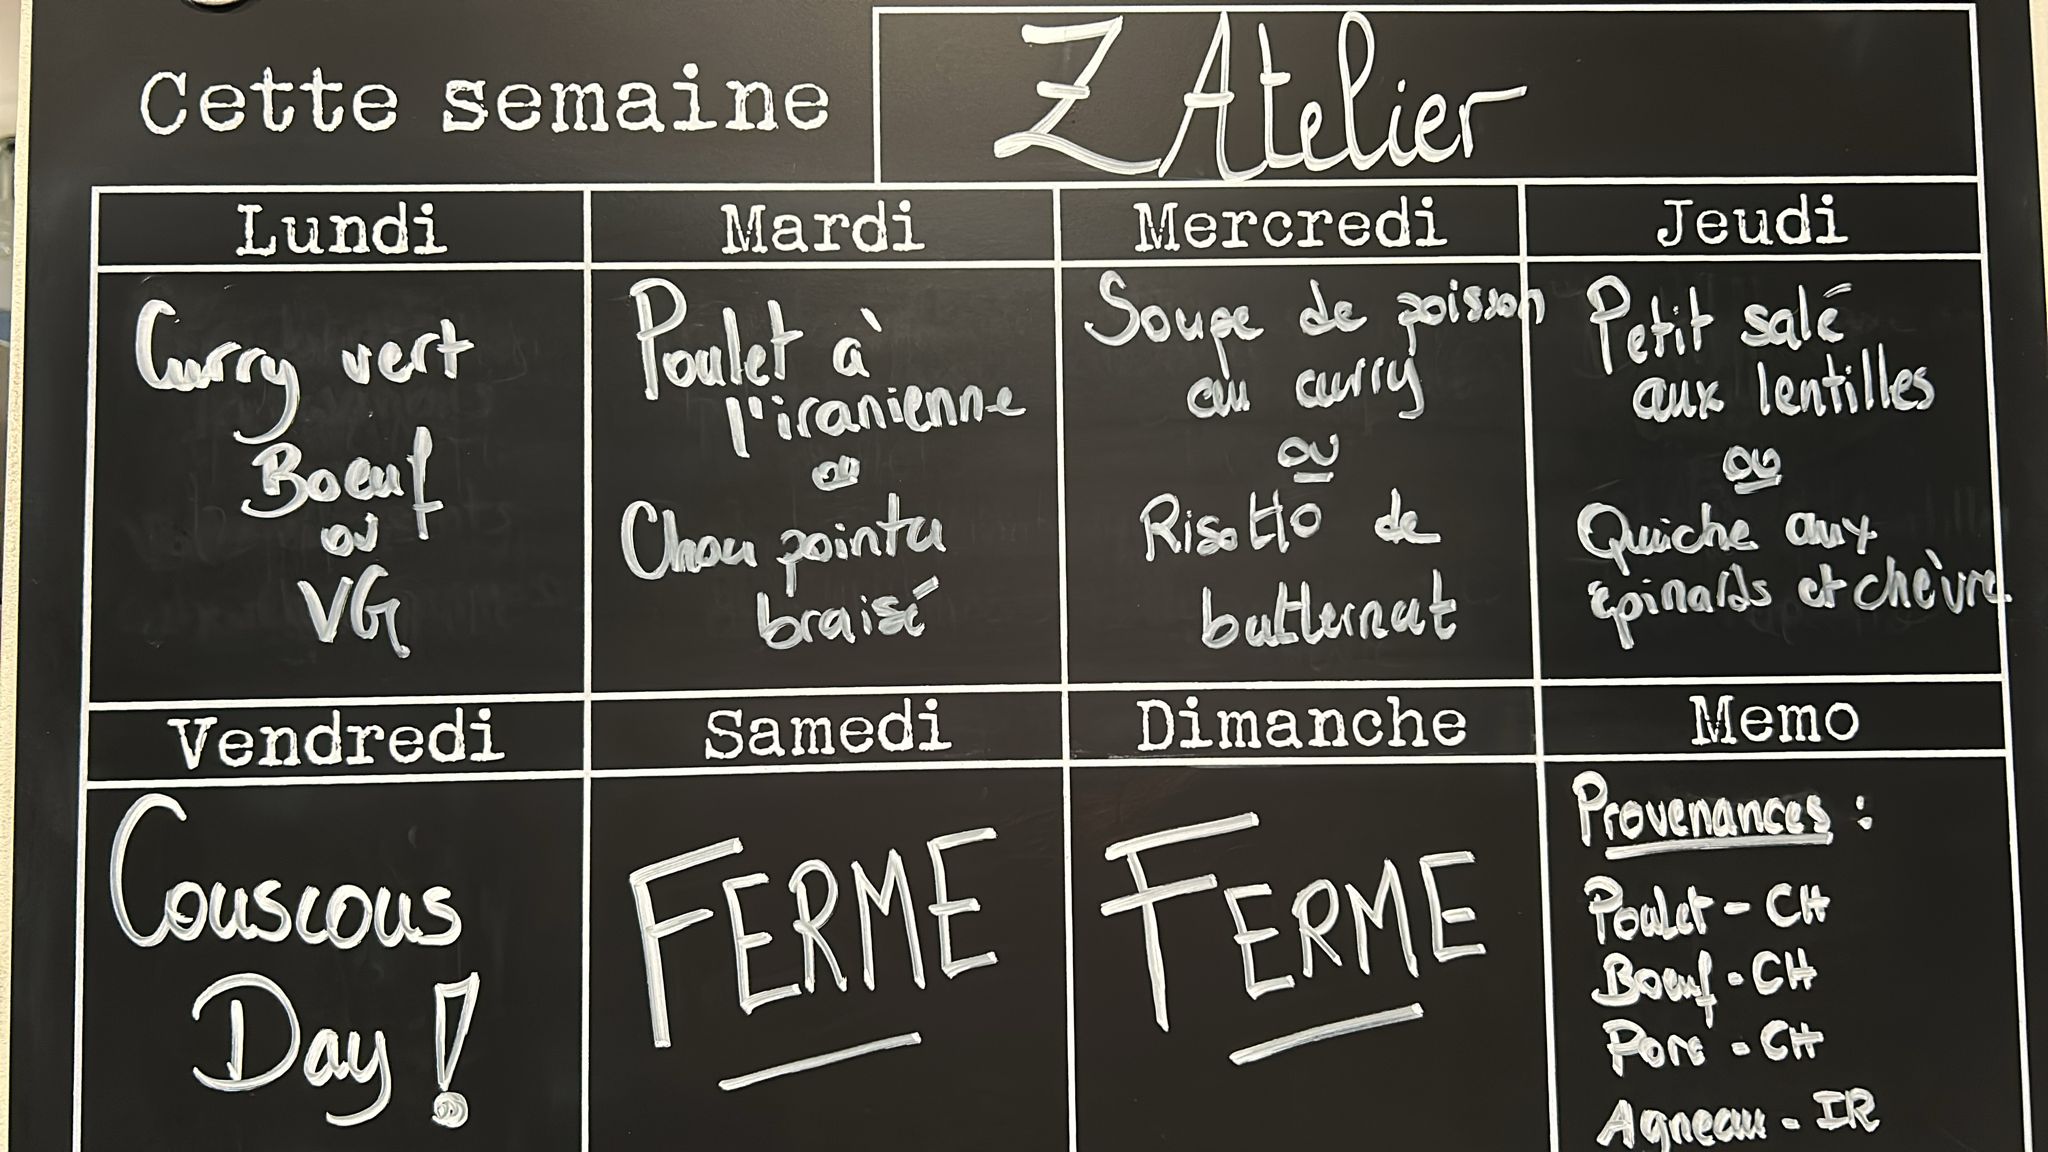 Cette semaine
Z Atelier
Lundi
Curry vert
Boeuf
ou
VG
Mardi
Poulet à
l'iranienne
ou
Chou pointu
braisé
Mercredi
Soupe de poisson
au curry
ou
Risotto de
butternut
Jeudi
Petit salé
aux lentilles
ou
Quiche aux
épinards et chèvre
Vendredi
Couscous
Day !
Samedi
FERME
Dimanche
FERME
Memo
Provenances :
Poulet - CH
Boeuf - CH
Porc - CH
Agneau - IR